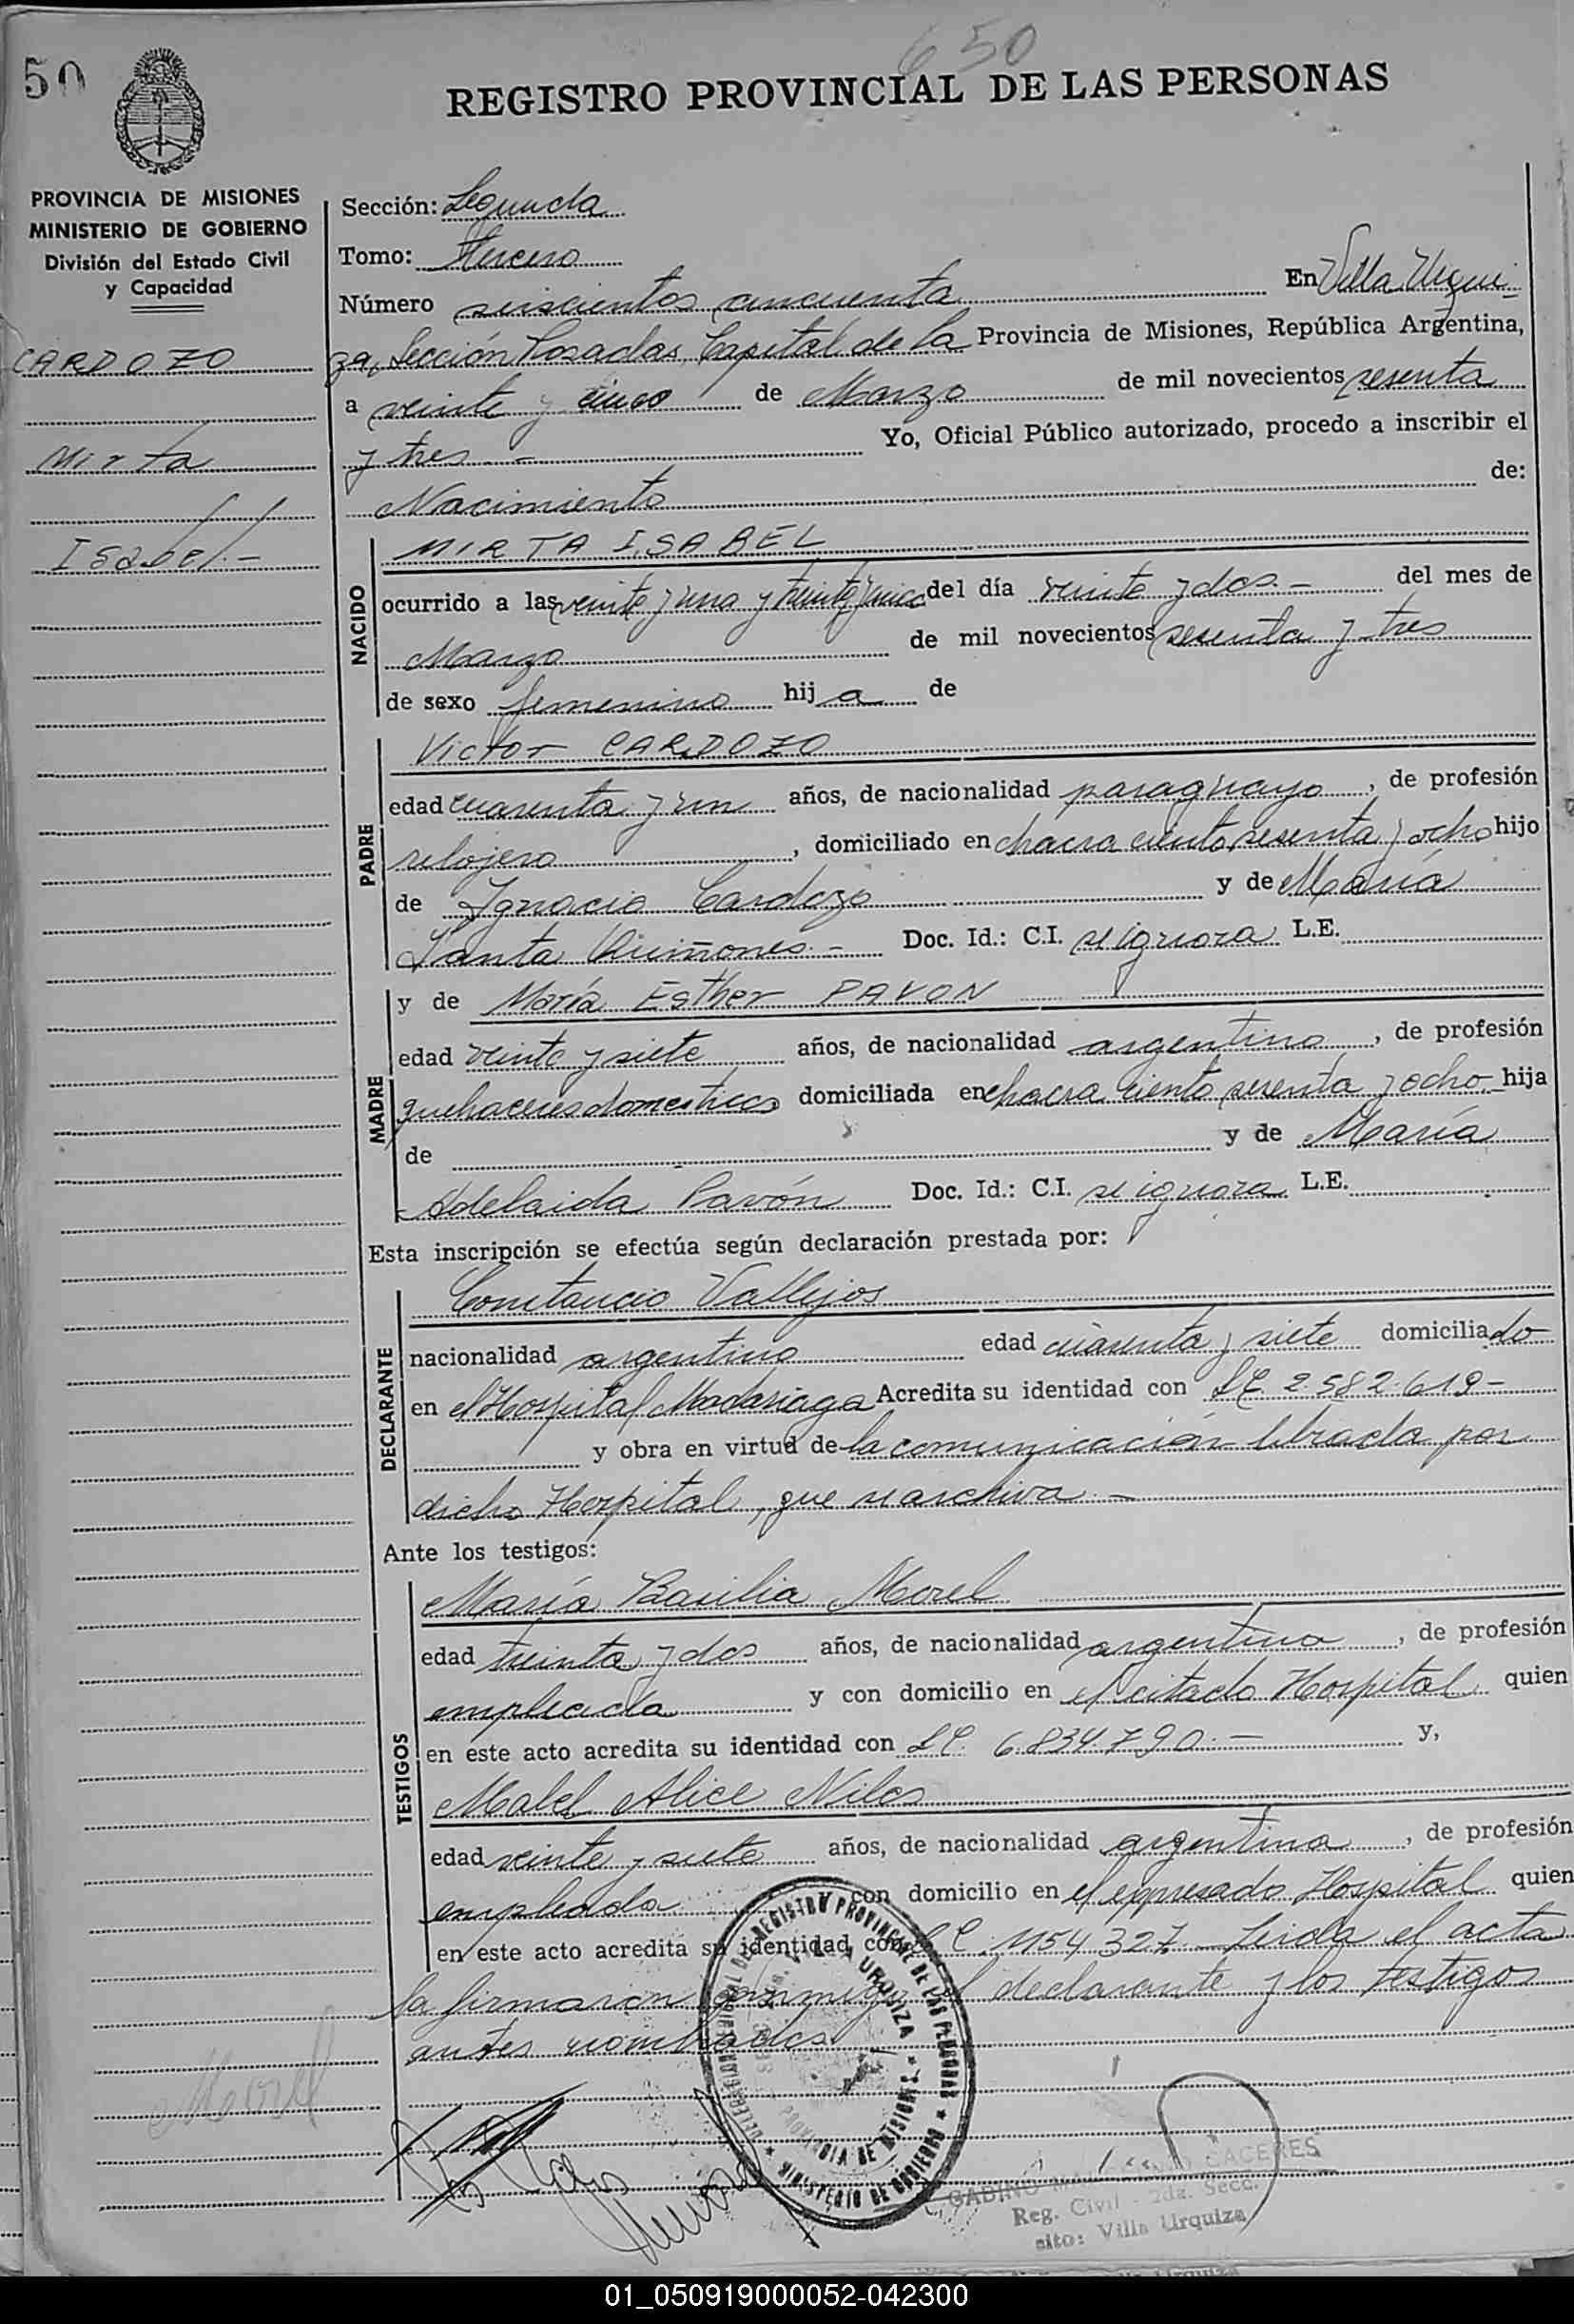 650
50
REGISTRO PROVINCIAL DE LAS PERSONAS
PROVINCIA DE MISIONES
MINISTERIO DE GOBIERNO
División del Estado Civil
y Capacidad
CARDOZO
Mirta
Isabel.-
Sección: Segunda
Tomo: Tercero
Número seiscientos cincuenta En Villa Urqui-
za, Sección Posadas, Capital de la Provincia de Misiones, República Argentina,
a veinte y cinco de Marzo de mil novecientos sesenta
y tres - Yo, Oficial Público autorizado, procedo a inscribir el
Nacimiento de:
NACIDO
MIRTA ISABEL
ocurrido a las veinte y una y treinta y cinco del día veinte y dos.- del mes de
Marzo de mil novecientos sesenta y tres
de sexo femenino hija de
PADRE
Victor CARDOZO
edad cuarenta y un años, de nacionalidad paraguayo, de profesión
relojero, domiciliado en chacra ciento sesenta y ocho hijo
de Ignacio Cardozo y de María
Santa Quiñones.- Doc. Id.: C.I. se ignora L.E.
MADRE
y de María Esther PAVON
edad veinte y siete años, de nacionalidad argentina, de profesión
quehaceres domesticos domiciliada en chacra ciento sesenta y ocho hija
de y de María
Adelaida Pavón Doc. Id.: C.I. se ignora L.E.
Esta inscripción se efectúa según declaración prestada por:
DECLARANTE
Constancio Vallejos
nacionalidad argentino edad cuarenta y siete domiciliado
en el Hospital Madariaga Acredita su identidad con L.E. 2.582.619-
y obra en virtud de la comunicación librada por
dicho Hospital, que se archiva.-
Ante los testigos:
TESTIGOS
María Basilia Morel
edad treinta y dos años, de nacionalidad argentina, de profesión
empleada y con domicilio en el citado Hospital quien
en este acto acredita su identidad con L.C. 6.834.790.- y,
Mabel Alice Niles
edad veinte y siete años, de nacionalidad argentina, de profesión
empleada y con domicilio en el expresado Hospital quien
en este acto acredita su identidad con L.C. 1154327. Leida el acta
la firmaron conmigo el declarante y los testigos
antes nombrados
Morel
REGISTRO PROVINCIAL DE LAS PERSONAS
VILLA URQUIZA
PROVINCIA DE MISIONES
MINISTERIO DE GOBIERNO
GABINO CACERES
Reg. Civil - 2da. Secc.
sito: Villa Urquiza
01_050919000052-042300